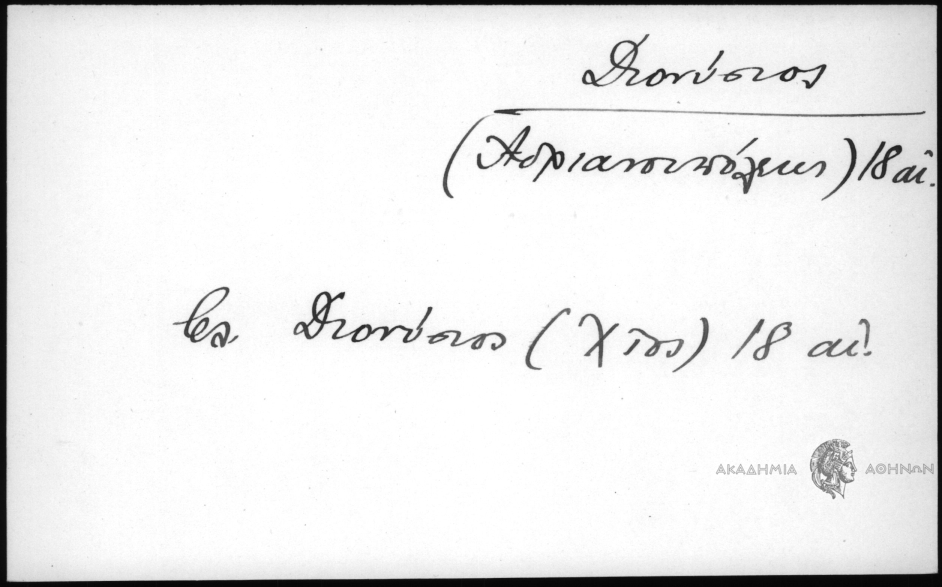 Διονύσιος
(Ἀδριανουπόλεως) 18 αἰ.
βλ. Διονύσιος (Χῖος) 18 αἰ.
ΑΚΑΔΗΜΙΑ ΑΘΗΝΩΝ